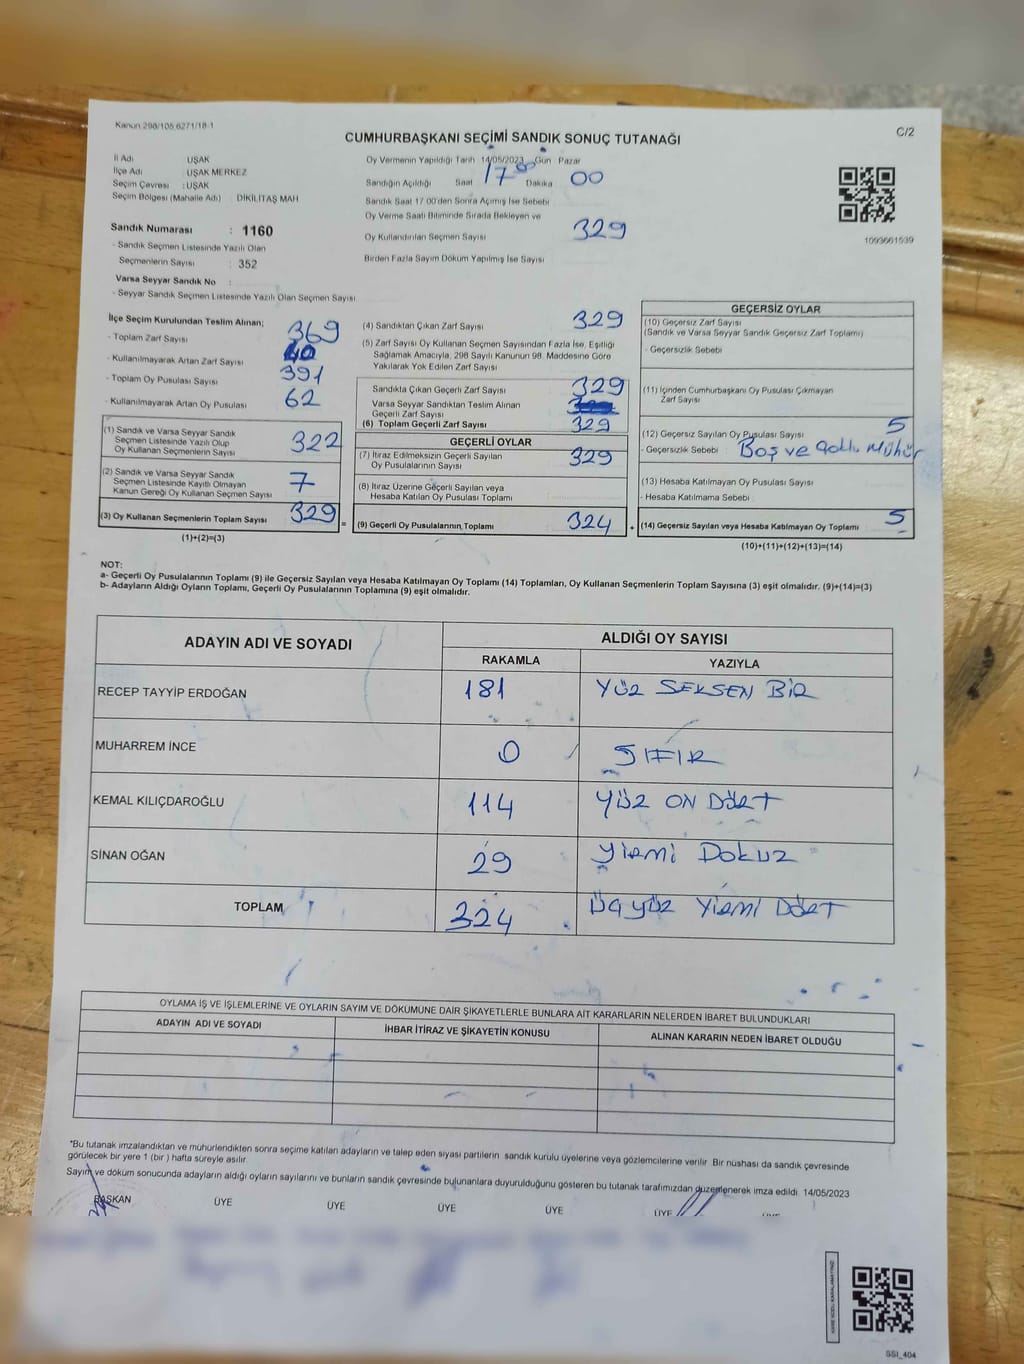 Kanun 298/105 6271/18-1
CUMHURBAŞKANI SEÇİMİ SANDIK SONUÇ TUTANAĞI
C/2
İl Adı UŞAK
İlçe Adı : UŞAK MERKEZ
Seçim Çevresi : UŞAK
Seçim Bölgesi (Mahalle Adı) DİKİLİTAŞ MAH
Sandık Numarası : 1160
- Sandık Seçmen Listesinde Yazılı Olan
Seçmenlerin Sayısı : 352
Varsa Seyyar Sandık No :
- Seyyar Sandık Seçmen Listesinde Yazılı Olan Seçmen Sayısı
Oy Vermenin Yapıldığı Tarih 14/05/2023 Gün Pazar
Sandığın Açıldığı Saat 17 00 Dakika 00
Sandık Saat 17 00'den Sonra Açılmış İse Sebebi
Oy Verme Saati Bitiminde Sırada Bekleyen ve
Oy Kullandırılan Seçmen Sayısı 329
Birden Fazla Sayım Döküm Yapılmış İse Sayısı
1093661539
İlçe Seçim Kurulundan Teslim Alınan;
- Toplam Zarf Sayısı 369
- Kullanılmayarak Artan Zarf Sayısı 40
- Toplam Oy Pusulası Sayısı 391
- Kullanılmayarak Artan Oy Pusulası 62
(1) Sandık ve Varsa Seyyar Sandık
Seçmen Listesinde Yazılı Olup
Oy Kullanan Seçmenlerin Sayısı 322
(2) Sandık ve Varsa Seyyar Sandık
Seçmen Listesinde Kayıtlı Olmayan
Kanun Gereği Oy Kullanan Seçmen Sayısı 7
(3) Oy Kullanan Seçmenlerin Toplam Sayısı 329 =
(1)+(2)=(3)
(4) Sandıktan Çıkan Zarf Sayısı 329
(5) Zarf Sayısı Oy Kullanan Seçmen Sayısından Fazla İse, Eşitliği
Sağlamak Amacıyla, 298 Sayılı Kanunun 98. Maddesine Göre
Yakılarak Yok Edilen Zarf Sayısı
Sandıkta Çıkan Geçerli Zarf Sayısı 329
Varsa Seyyar Sandıktan Teslim Alınan
Geçerli Zarf Sayısı
(6) Toplam Geçerli Zarf Sayısı 329
GEÇERLİ OYLAR
(7) İtiraz Edilmeksizin Geçerli Sayılan
Oy Pusulalarının Sayısı 329
(8) İtiraz Üzerine Geçerli Sayılan veya
Hesaba Katılan Oy Pusulası Toplamı
(9) Geçerli Oy Pusulalarının Toplamı 324 +
GEÇERSİZ OYLAR
(10) Geçersiz Zarf Sayısı
(Sandık ve Varsa Seyyar Sandık Geçersiz Zarf Toplamı)
- Geçersizlik Sebebi
(11) İçinden Cumhurbaşkanı Oy Pusulası Çıkmayan
Zarf Sayısı
(12) Geçersiz Sayılan Oy Pusulası Sayısı 5
- Geçersizlik Sebebi Boş ve Mühür
(13) Hesaba Katılmayan Oy Pusulası Sayısı
- Hesaba Katılmama Sebebi
(14) Geçersiz Sayılan veya Hesaba Katılmayan Oy Toplamı 5
(10)+(11)+(12)+(13)=(14)
NOT:
a- Geçerli Oy Pusulalarının Toplamı (9) ile Geçersiz Sayılan veya Hesaba Katılmayan Oy Toplamı (14) Toplamları, Oy Kullanan Seçmenlerin Toplam Sayısına (3) eşit olmalıdır. (9)+(14)=(3)
b- Adayların Aldığı Oyların Toplamı, Geçerli Oy Pusulalarının Toplamına (9) eşit olmalıdır.
ADAYIN ADI VE SOYADI
ALDIĞI OY SAYISI
RAKAMLA YAZIYLA
RECEP TAYYİP ERDOĞAN 181 YÜZ SEKSEN BİR
MUHARREM İNCE 0 SIFIR
KEMAL KILIÇDAROĞLU 114 YÜZ ON DÖRT
SİNAN OĞAN 29 YİRMİ DOKUZ
TOPLAM 324 ÜÇ YÜZ YİRMİ DÖRT
OYLAMA İŞ VE İŞLEMLERİNE VE OYLARIN SAYIM VE DÖKÜMÜNE DAİR ŞİKAYETLERLE BUNLARA AİT KARARLARIN NELERDEN İBARET BULUNDUKLARI
ADAYIN ADI VE SOYADI İHBAR İTİRAZ VE ŞİKAYETİN KONUSU ALINAN KARARIN NEDEN İBARET OLDUĞU
*Bu tutanak imzalandıktan ve mühürlendikten sonra seçime katılan adayların ve talep eden siyasi partilerin sandık kurulu üyelerine veya gözlemcilerine verilir Bir nüshası da sandık çevresinde
görülecek bir yere 1 (bir) hafta süreyle asılır.
Sayım ve döküm sonucunda adayların aldığı oyların sayılarını ve bunların sandık çevresinde bulunanlara duyurulduğunu gösteren bu tutanak tarafımızdan düzenlenerek imza edildi. 14/05/2023
BAŞKAN ÜYE ÜYE ÜYE ÜYE ÜYE
SSI_404